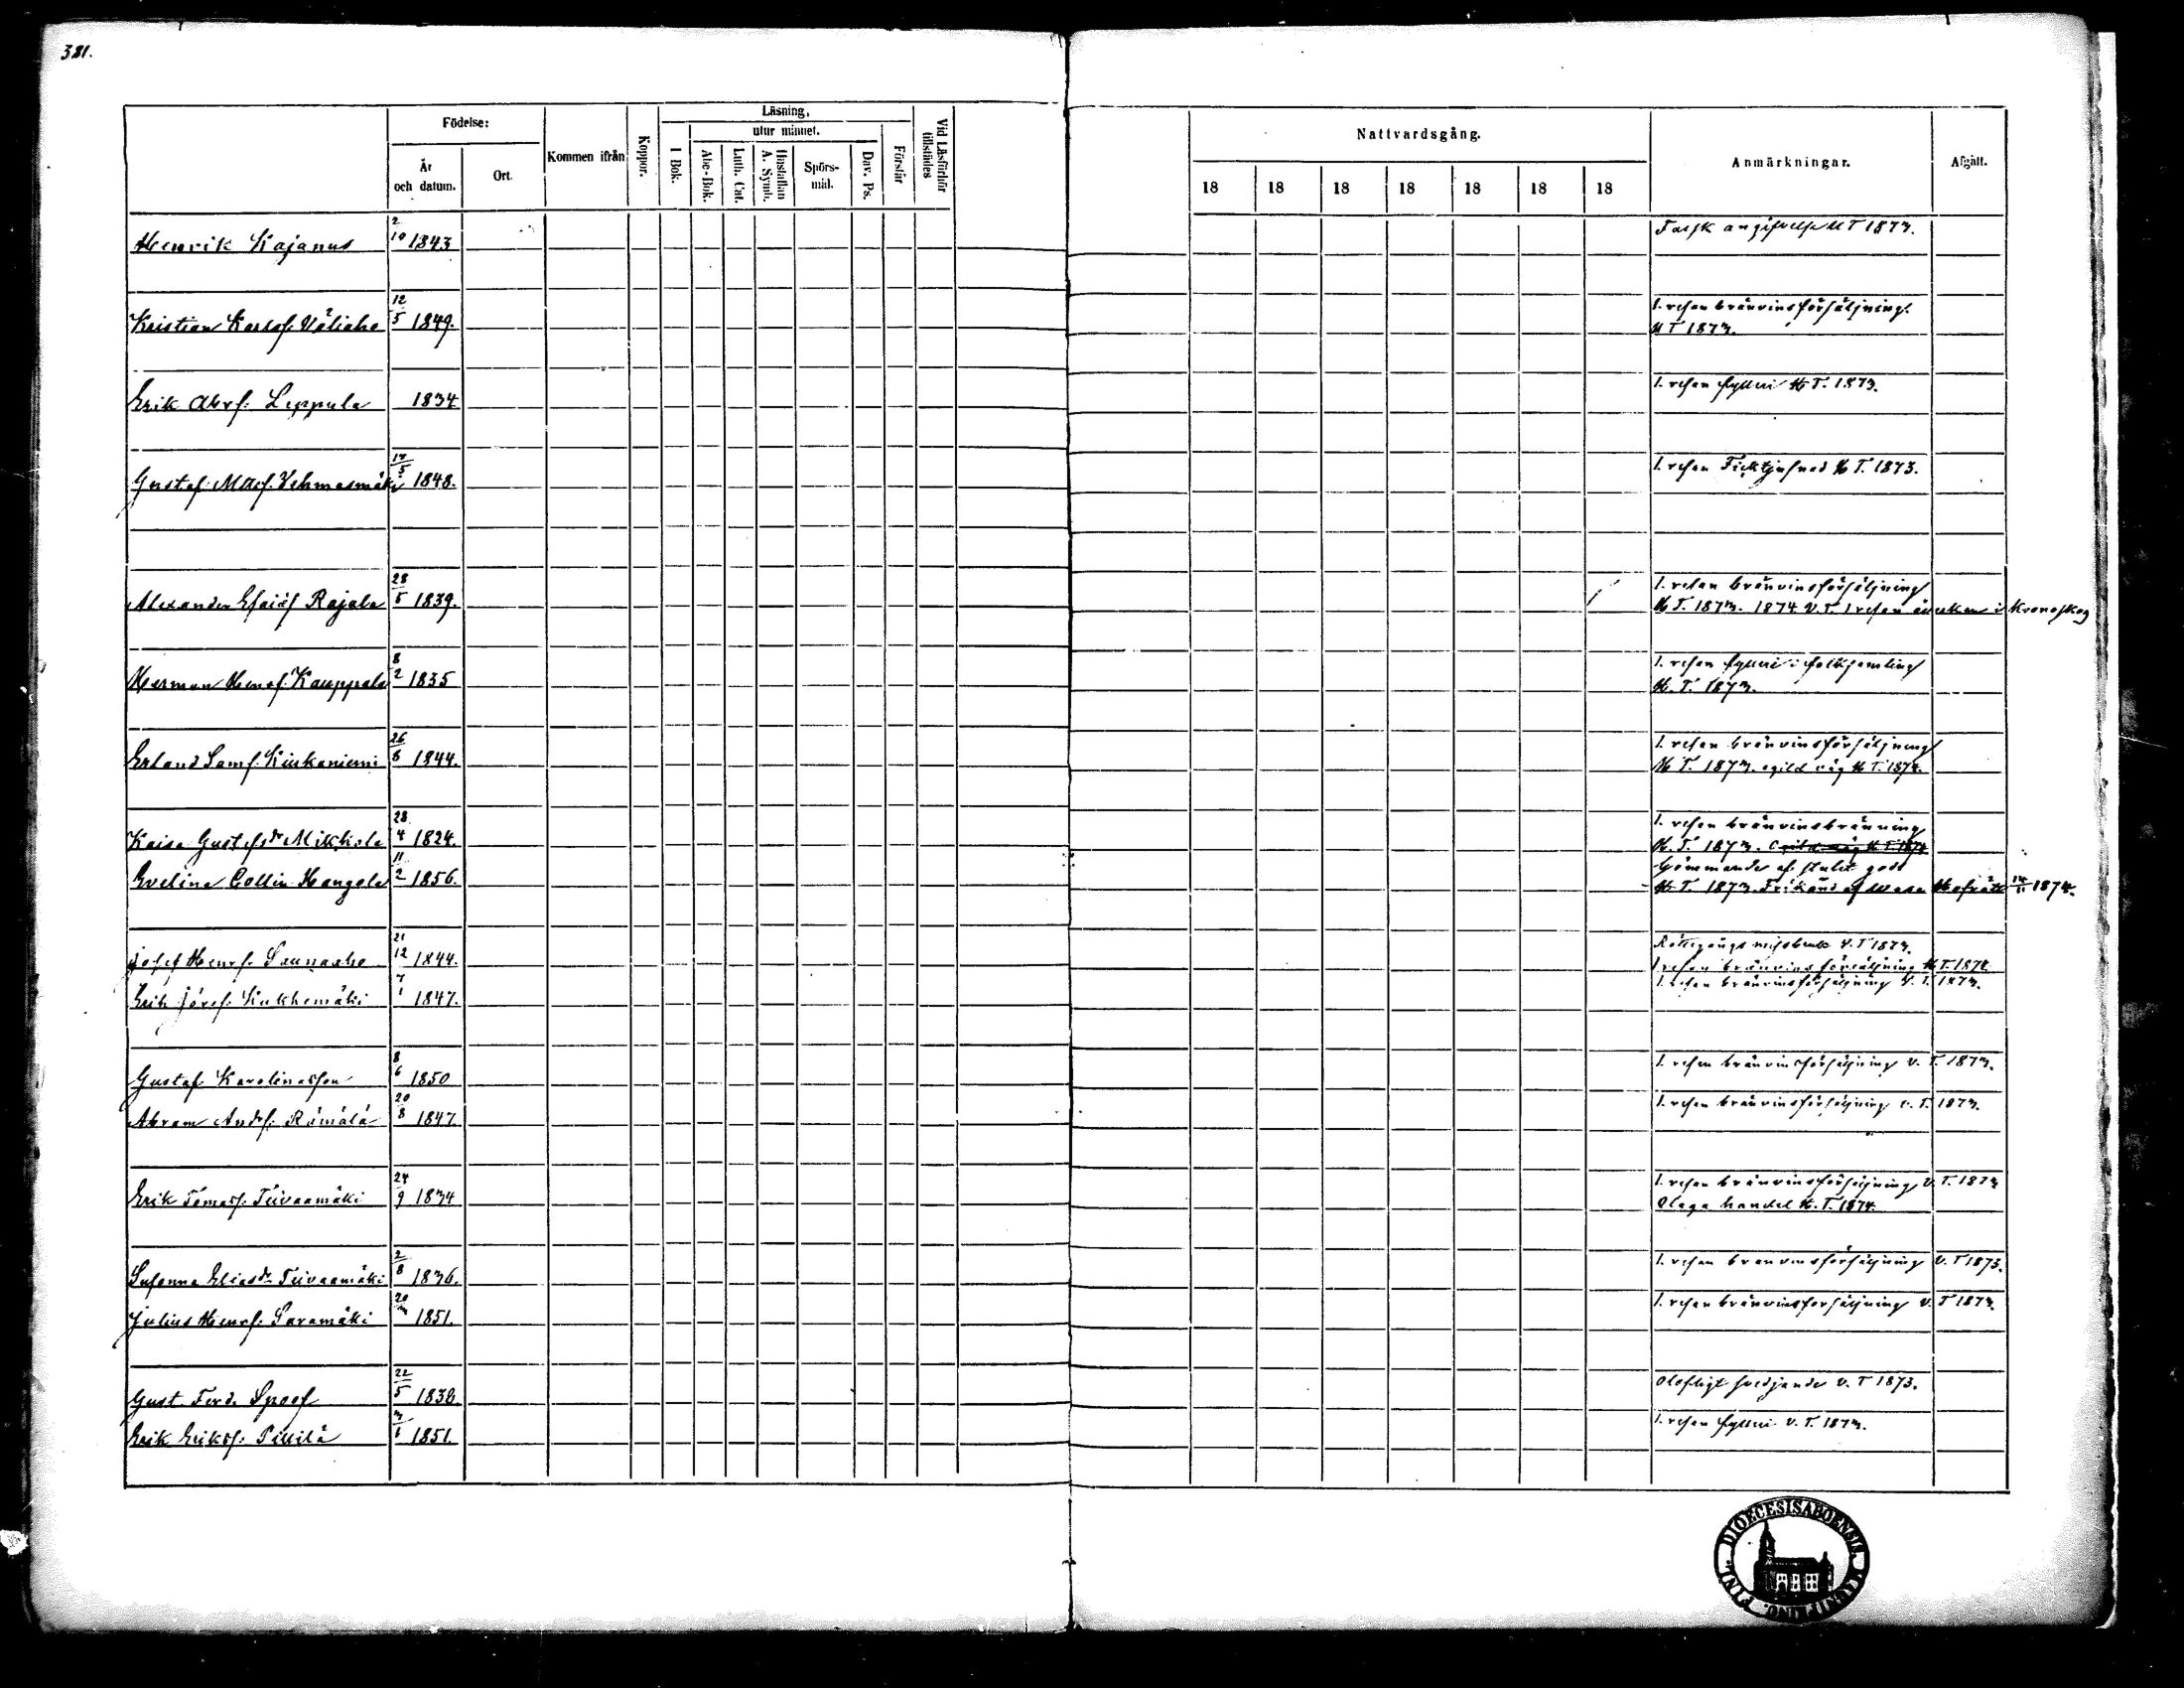 381.
Födelse:
År och datum.
Ort.
Kommen ifrån
Koppor.
Läsning,
utur minnet.
I Bok.
Abc-Bok.
Luth. Cat.
Hustaflan A. Symb.
Spörs-mål.
Dav. Ps.
Förstår
Vid Läsförhör tillstädes
Nattvardsgång.
18 18 18 18 18 18 18
Anmärkningar.
Afgått.
Henrik Kajanus 2/10 1843 Falsk angifvelse HT 1873.
Kristian Karlsf. Väliaho 12/5 1849. 1. resan bränvinsförsäljning
HT 1873.
Erik Abrf. Leppula 1834 1. resan fylleri HT. 1873.
Gustaf Mattsf. Vehmasmäki 17/5 1848. 1. resan Ficktjufnad HT. 1873.
Alexander Esaiäf Rajala 28/5 1839. 1. resan bränvinsförsäljning
HT. 1873. 1874 V.T. 1 resan åverkan i Kronoskog
Herman Henrf. Kauppala 8/2 1835 1. resan fylleri i folksamling
H. T. 1873.
Erland Samf. Kiukaniemi 26/6 1844. 1. resan bränvinsförsäljning
H T. 1873. ogild väg H T. 1874.
Kaisa Gustafsdr Mikkola 28/4 1824. 1. resan bränvinsbränning
H. T. 1873.
Evelina Collin Hangola 11/2 1856. Gömmande af stulet gods
H. T. 1873. Frikänd af Wasa Hofrätt 14/11 1874.
Josef Henrf. Saunaaho 21/12 1844. Rättegångs missbruk V.T 1873.
1 resan bränvinsförsäljning HT. 1874
Erik Josef. Kukkemäki 7/1 1847. 1. resan bränvinsförsäljning V. T. 1873.
Gustaf Karolinasson 8/6 1850 1. resan bränvinsförsäljning V. T. 1873.
Abram Andrf. Rämälä 20/8 1847. 1. resan bränvinsförsäljning V. T. 1873.
Erik Tomasf. Teivaamäki 24/9 1834 1. resan bränvinsförsäljning V. T. 1873
Olaga handel H. T. 1874.
Susanna Eliasdr Teivaamäki 2/8 1836. 1. resan bränvinsförsäljning V. T 1873.
Julius Henrf. Saramäki 20/ 1851. 1. resan bränvinsförsäljning V. T 1873.
Gust. Ferd. Spoof 22/5 1838. Olofligt svedjande V. T 1873.
Erik Eriksf. Pillilä 1851. 1. resan fylleri V. T. 1873.
DIOECESIS ABOENSIS. FINL.